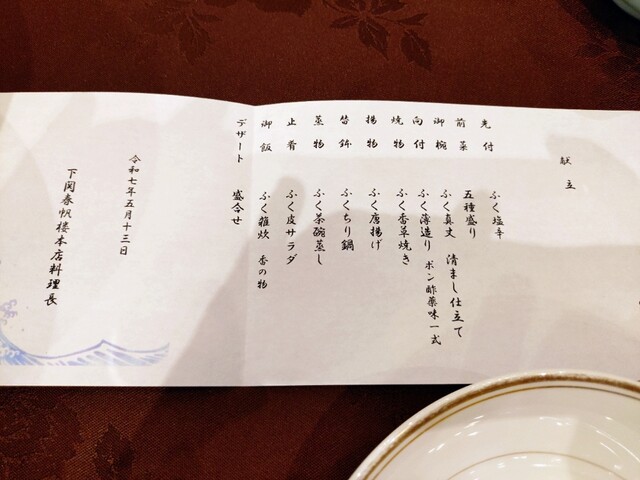 献立
先付 ふく塩辛
前菜 五種盛り
御椀 ふく真丈 清まし仕立て
向付 ふく薄造り ポン酢薬味一式
焼物 ふく香草焼き
揚物 ふく唐揚げ
替鉢 ふくちり鍋
蒸物 ふく茶碗蒸し
止肴 ふく皮サラダ
御飯 ふく雑炊 香の物
デザート 盛合せ
令和七年五月十三日
下関春帆楼本店料理長